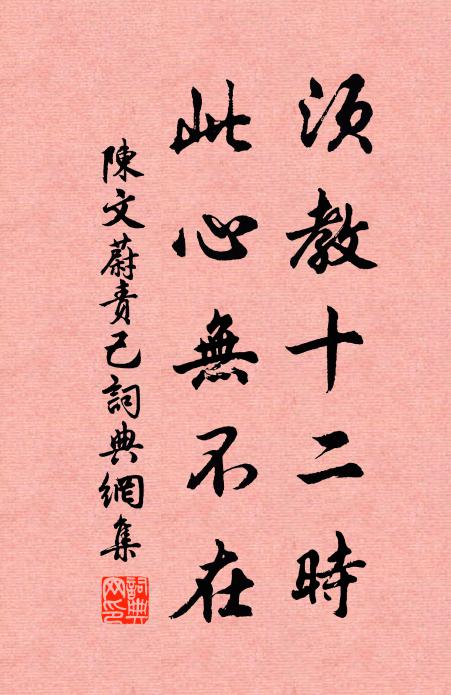 須教十二時
此心無不在
陳文蔚責己詞典網集
詞典網印